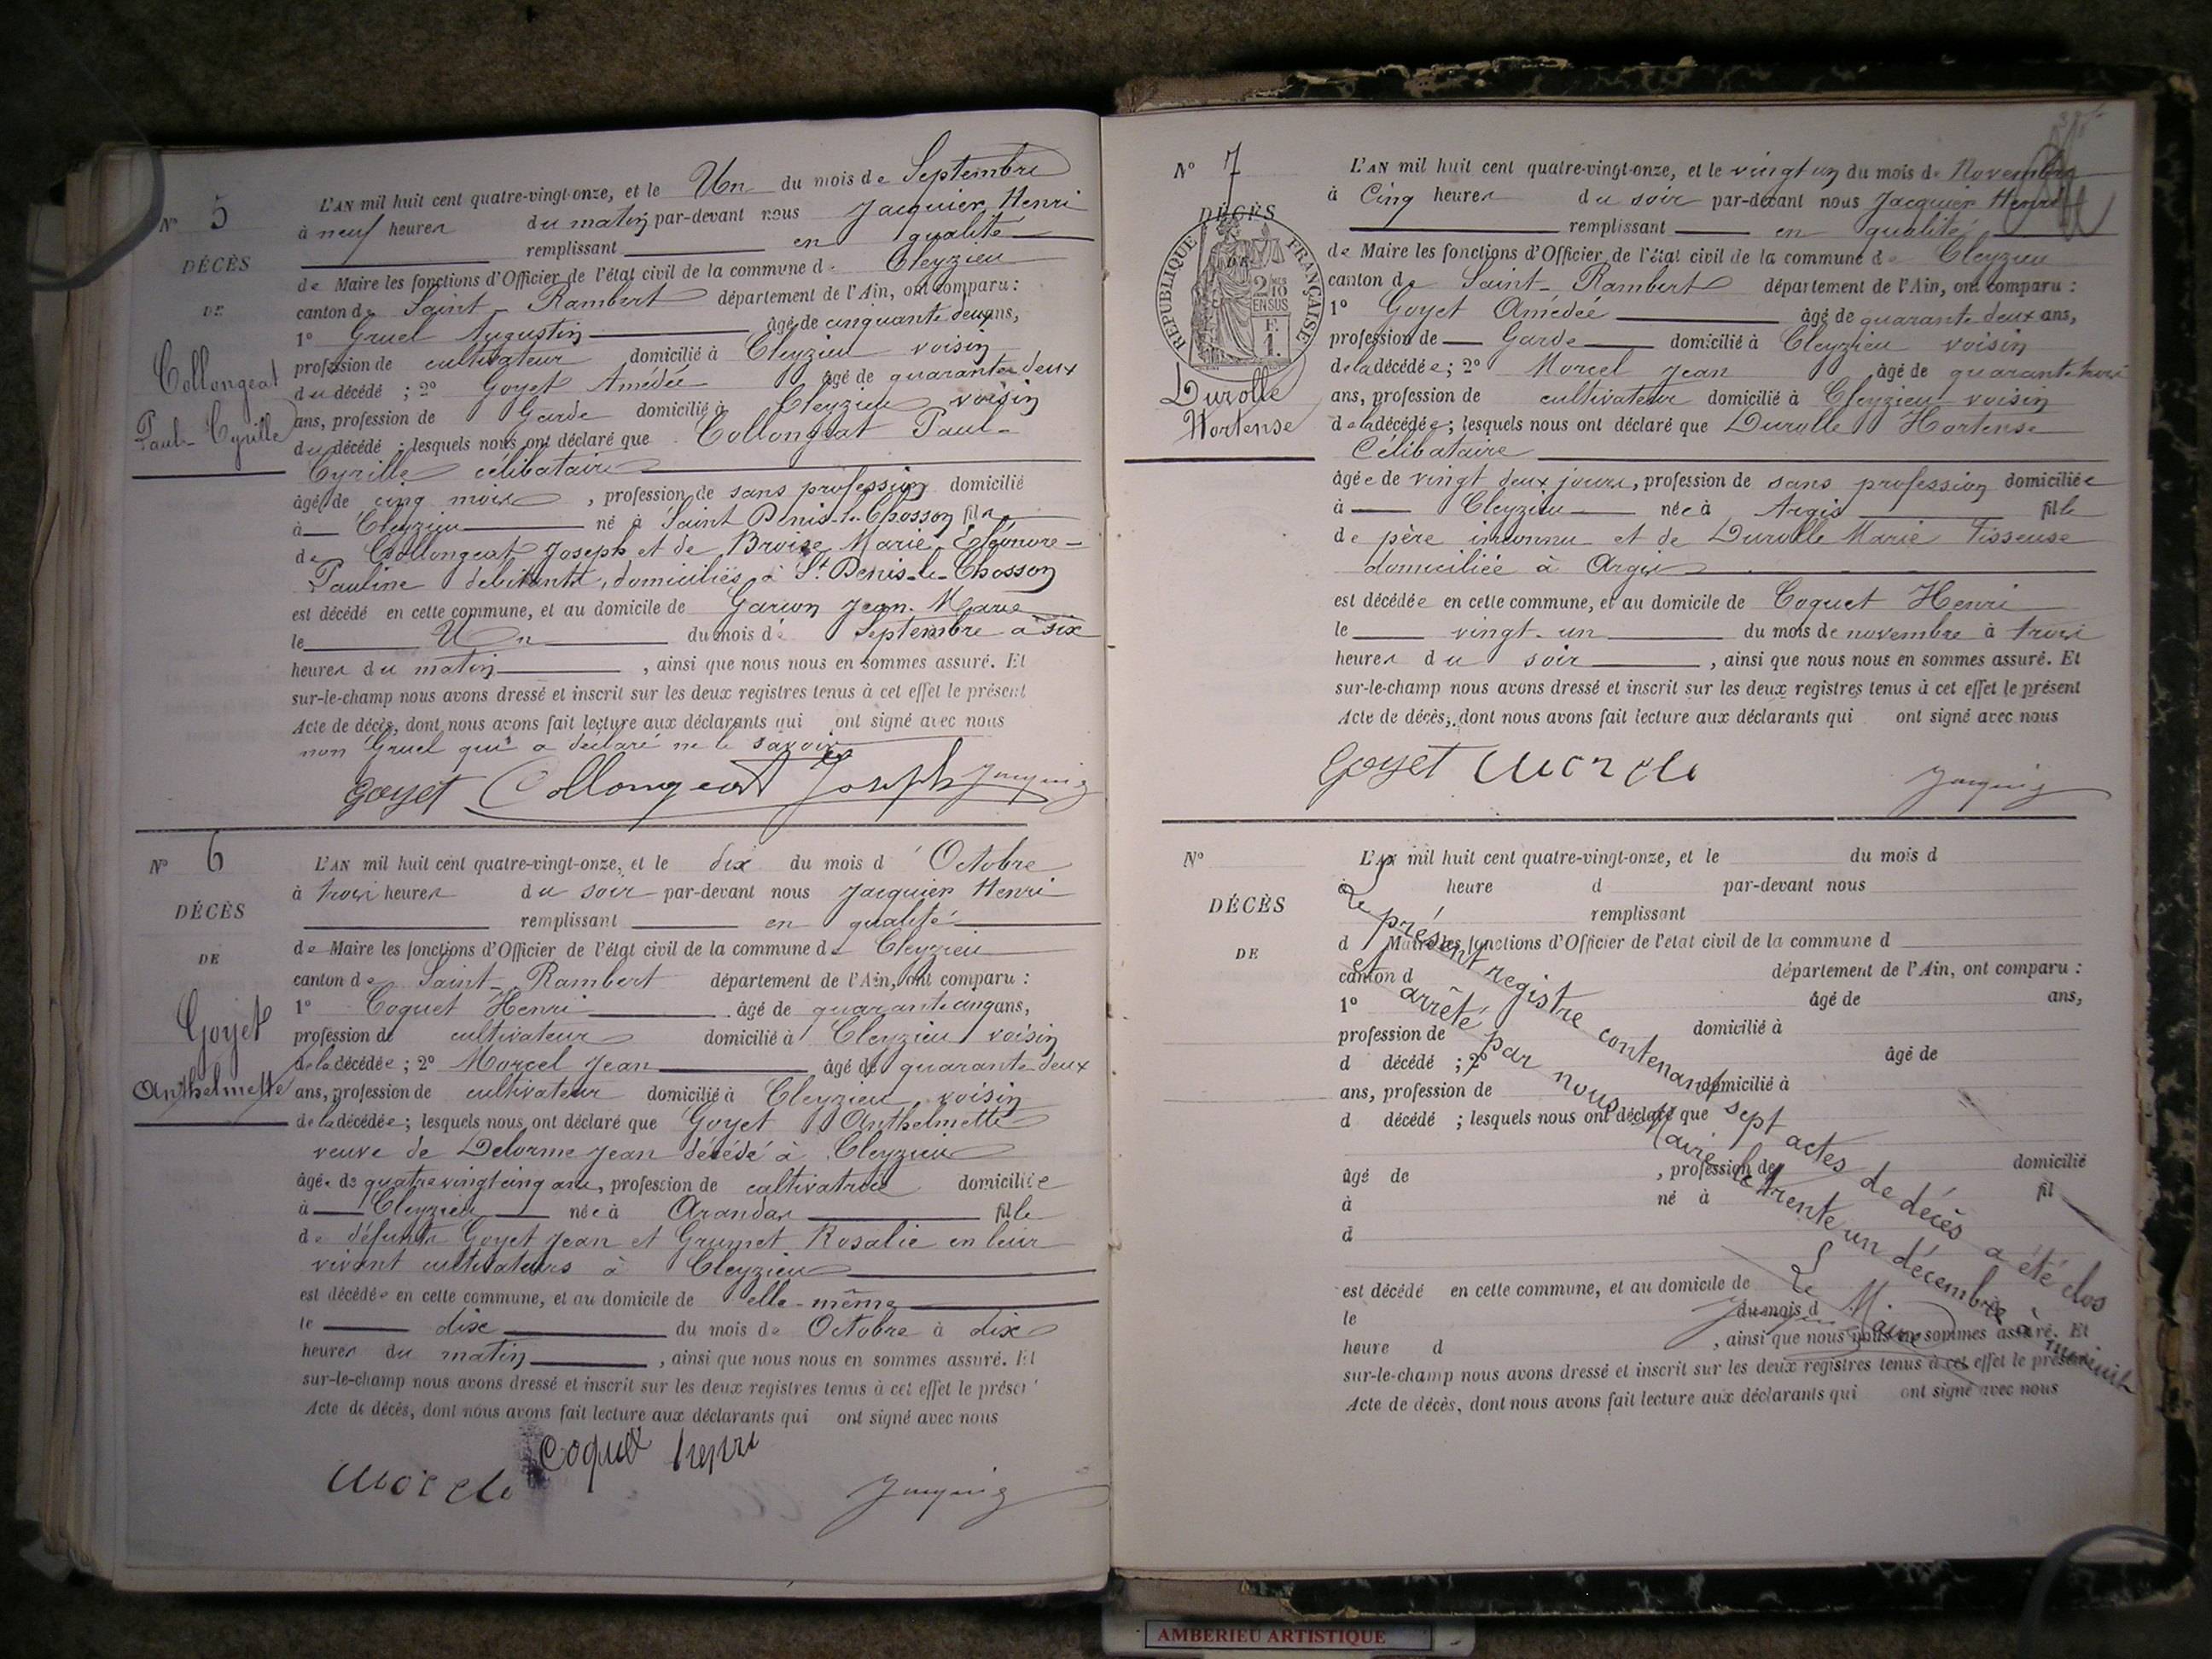 N° 5
DÉCÈS
DE
Collongeat
Paul-Cyrille
L'AN mil huit cent quatre-vingt-onze, et le Un du mois de Septembre
à neuf heures du matin par-devant nous Jacquier Henri
remplissant en qualité
de Maire les fonctions d'Officier de l'état civil de la commune de Cleyzieu
canton de Saint-Rambert département de l'Ain, ont comparu :
1° Gruel Augustin âgé de cinquante deux ans,
profession de cultivateur domicilié à Cleyzieu voisin
du décédé ; 2° Goyet Amédée âgé de quarante deux
ans, profession de Garde domicilié à Cleyzieu voisin
du décédé ; lesquels nous ont déclaré que Collongeat Paul-
Cyrille célibataire
âgé de cinq mois , profession de sans profession domicilié
à Cleyzieu né à Saint Denis-le-Chosson fils
de Collongeat Joseph et de Broise Marie Eléonore-
Pauline débitants, domiciliés à St Denis-le-Chosson
est décédé en cette commune, et au domicile de Garion Jean-Marie
le Un du mois de Septembre à six
heures du matin , ainsi que nous nous en sommes assuré. Et
sur-le-champ nous avons dressé et inscrit sur les deux registres tenus à cet effet le présent
Acte de décès, dont nous avons fait lecture aux déclarants qui ont signé avec nous
non Gruel qui a déclaré ne le savoir
Goyet Collongeat Joseph Jacquier
N° 6
DÉCÈS
DE
Goyet
Anthelmette
L'AN mil huit cent quatre-vingt-onze, et le dix du mois d'Octobre
à trois heures du soir par-devant nous Jacquier Henri
remplissant en qualité
de Maire les fonctions d'Officier de l'état civil de la commune de Cleyzieu
canton de Saint-Rambert département de l'Ain, ont comparu :
1° Coquet Henri âgé de quarante cinq ans,
profession de cultivateur domicilié à Cleyzieu voisin
de la décédée ; 2° Morcel Jean âgé de quarante deux
ans, profession de cultivateur domicilié à Cleyzieu voisin
de la décédée ; lesquels nous ont déclaré que Goyet Anthelmette
veuve de Delorme Jean décédé à Cleyzieu
âgée de quatre vingt cinq ans, profession de cultivatrice domiciliée
à Cleyzieu née à Arandas fille
de défunts Goyet Jean et Grumet Rosalie en leur
vivant cultivateurs à Cleyzieu
est décédée en cette commune, et au domicile de elle-même
le dix du mois de Octobre à dix
heures du matin , ainsi que nous nous en sommes assuré. Et
sur-le-champ nous avons dressé et inscrit sur les deux registres tenus à cet effet le présent
Acte de décès, dont nous avons fait lecture aux déclarants qui ont signé avec nous
Coquet henri
Morcel Jacquier
N° 7
DÉCÈS
DE
RÉPUBLIQUE FRANÇAISE
2/10 EN SUS
F. 1.
Durolle
Hortense
L'AN mil huit cent quatre-vingt-onze, et le vingt un du mois de Novembre
à Cinq heures du soir par-devant nous Jacquier Henri
remplissant en qualité
de Maire les fonctions d'Officier de l'état civil de la commune de Cleyzieu
canton de Saint-Rambert département de l'Ain, ont comparu :
1° Goyet Amédée âgé de quarante deux ans,
profession de Garde domicilié à Cleyzieu voisin
de la décédée ; 2° Morcel Jean âgé de quarante trois
ans, profession de cultivateur domicilié à Cleyzieu voisin
de la décédée ; lesquels nous ont déclaré que Durolle Hortense
Célibataire
âgée de vingt deux jours, profession de sans profession domiciliée
à Cleyzieu née à Argis fille
de père inconnu et de Durolle Marie Tisseuse
domiciliée à Argis
est décédée en cette commune, et au domicile de Coquet Henri
le vingt-un du mois de novembre à trois
heures du soir , ainsi que nous nous en sommes assuré. Et
sur-le-champ nous avons dressé et inscrit sur les deux registres tenus à cet effet le présent
Acte de décès, dont nous avons fait lecture aux déclarants qui ont signé avec nous
Goyet Morcel Jacquier
N°
DÉCÈS
DE
L'AN mil huit cent quatre-vingt-onze, et le du mois d
à heure d par-devant nous
remplissant
d Maire les fonctions d'Officier de l'état civil de la commune d
canton d département de l'Ain, ont comparu :
1° âgé de ans,
profession de domicilié à
d décédé ; 2° âgé de
ans, profession de domicilié à
d décédé ; lesquels nous ont déclaré que
âgé de , profession de domicilié
à né à fil
d
est décédé en cette commune, et au domicile de
le du mois d
heure d , ainsi que nous nous en sommes assuré. Et
sur-le-champ nous avons dressé et inscrit sur les deux registres tenus à cet effet le présent
Acte de décès, dont nous avons fait lecture aux déclarants qui ont signé avec nous
Le présent registre contenant sept actes de décès a été clos
et arrêté par nous Maire le trente un décembre à minuit
Le Maire
Jacquier
AMBERIEU ARTISTIQUE